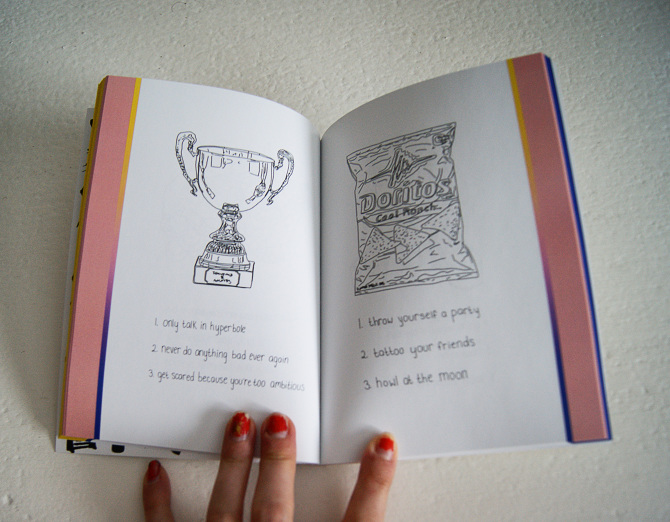 1. only talk in hyperbole
2. never do anything bad ever again
3. get scared because you're too ambitious
Doritos
Cool Ranch
1. throw yourself a party
2. tattoo your friends
3. howl at the moon